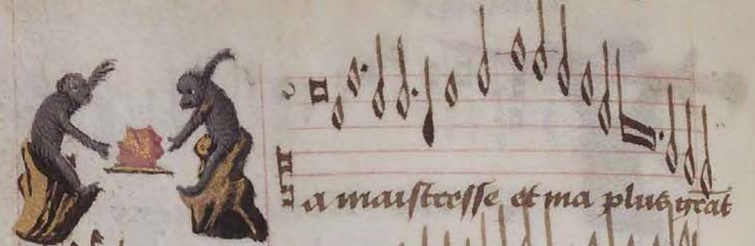 a maistresse et ma plus grāt